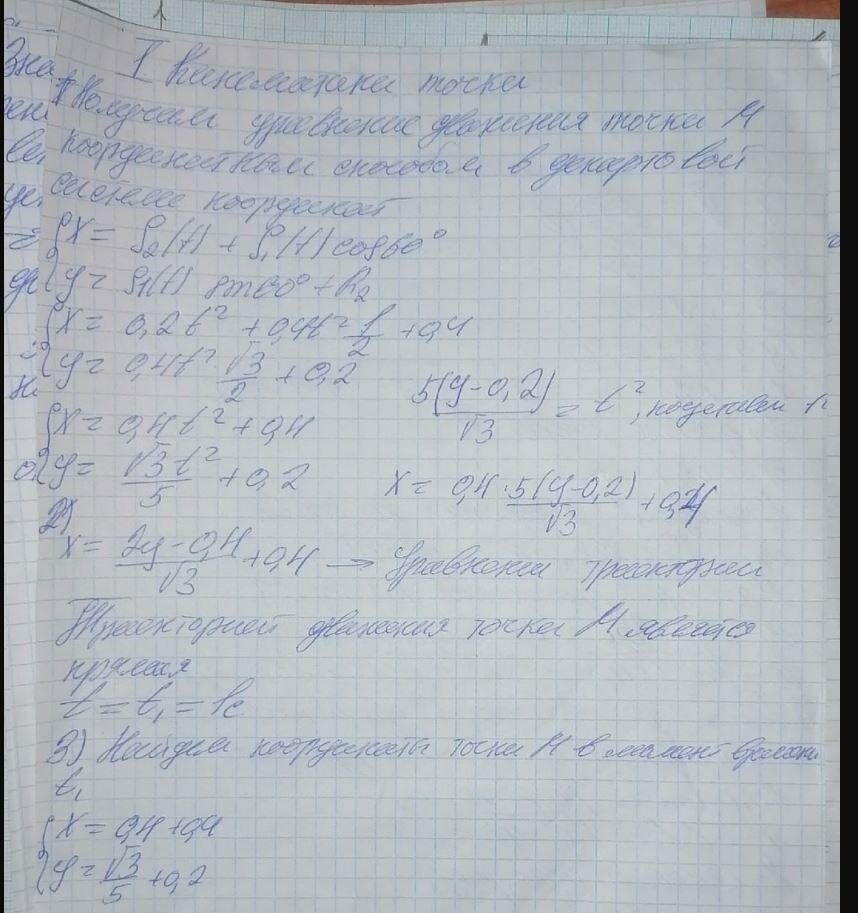 I Кинематика точки
1) Получим уравнение движения точки М
координатным способом в декартовой
системе координат
{x = ρ₂(t) + ρ₁(t) cos60°
{y = ρ₁(t) sin60° + R₂
{x = 0,2t² + 0,4t² 1/2 + 0,4
{y = 0,4t² · √3/2 + 0,2
5(y-0,2)/√3 = t², подставим
{x = 0,4t² + 0,4
{y = √3t²/5 + 0,2
x = 0,4 · 5(y-0,2)/√3 + 0,4
2)
x = (2y - 0,4)/√3 + 0,4 → Уравнение траектории
Траекторией движения точки М является
прямая
t = t₁ = 1c
3) Найдем координаты точки М в момент времени
t₁
{x = 0,4 + 0,4
{y = √3/5 + 0,2